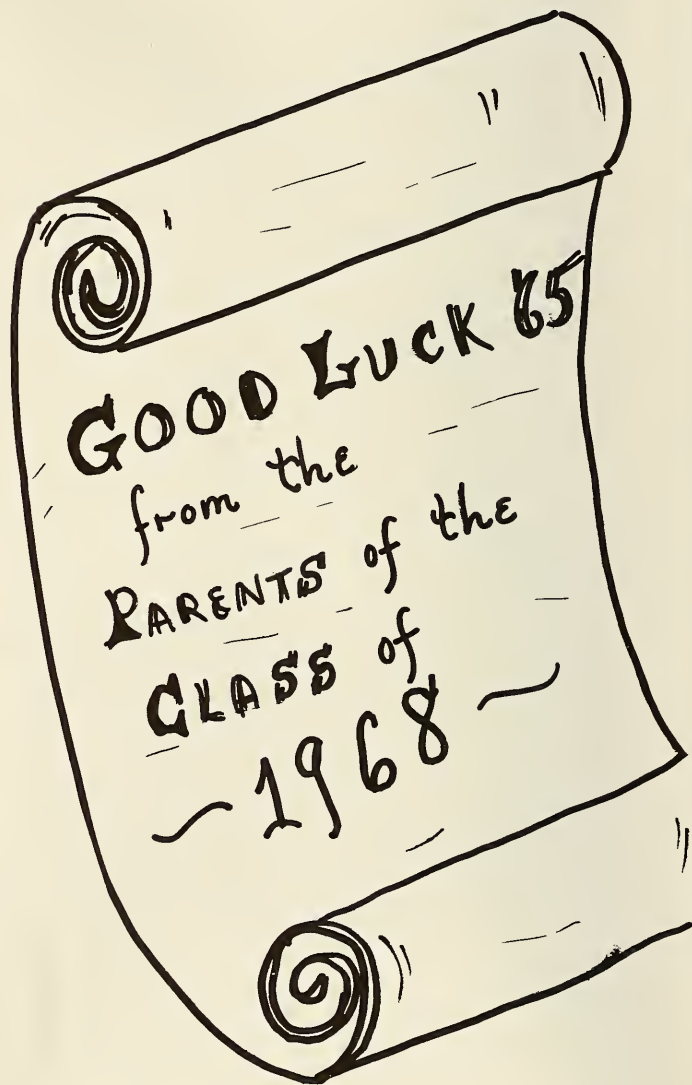 GOOD LUCK 65
from the
PARENTS of the
CLASS of
~1968~